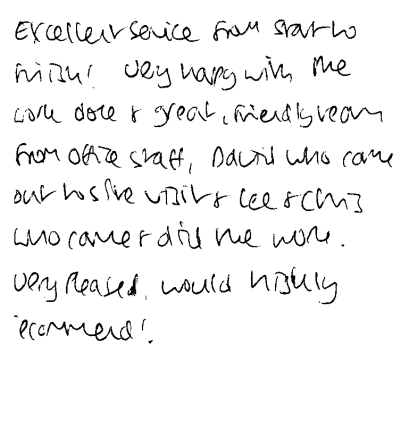 Excellent service from start to
finish! Very happy with the
work done & great, friendly team
from office staff, David who came
out to site visit & Lee & Chris
who came & did the work.
Very pleased, would highly
recommend!